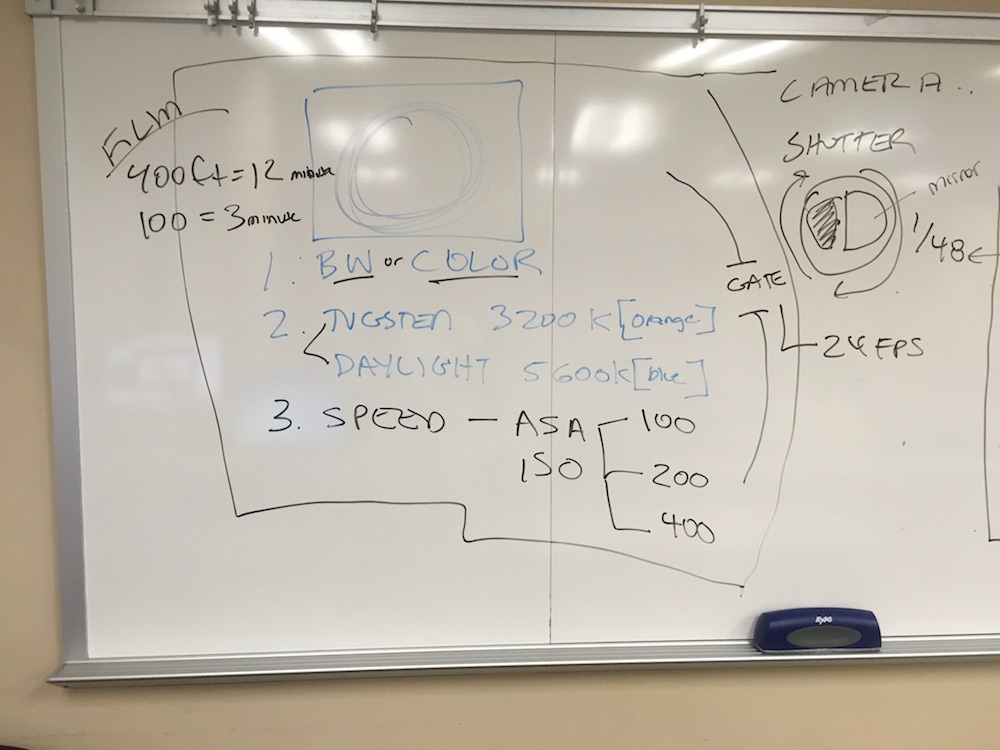 FILM
400ft = 12 minute
100 = 3 minute
1. BW or COLOR
2. TUGSTEN 3200K [orange]
DAYLIGHT 5600K [blue]
3. SPEED – ASA
ISO
100
200
400
CAMERA..
SHUTTER
mirror
1/48
GATE
24 FPS
EXPO